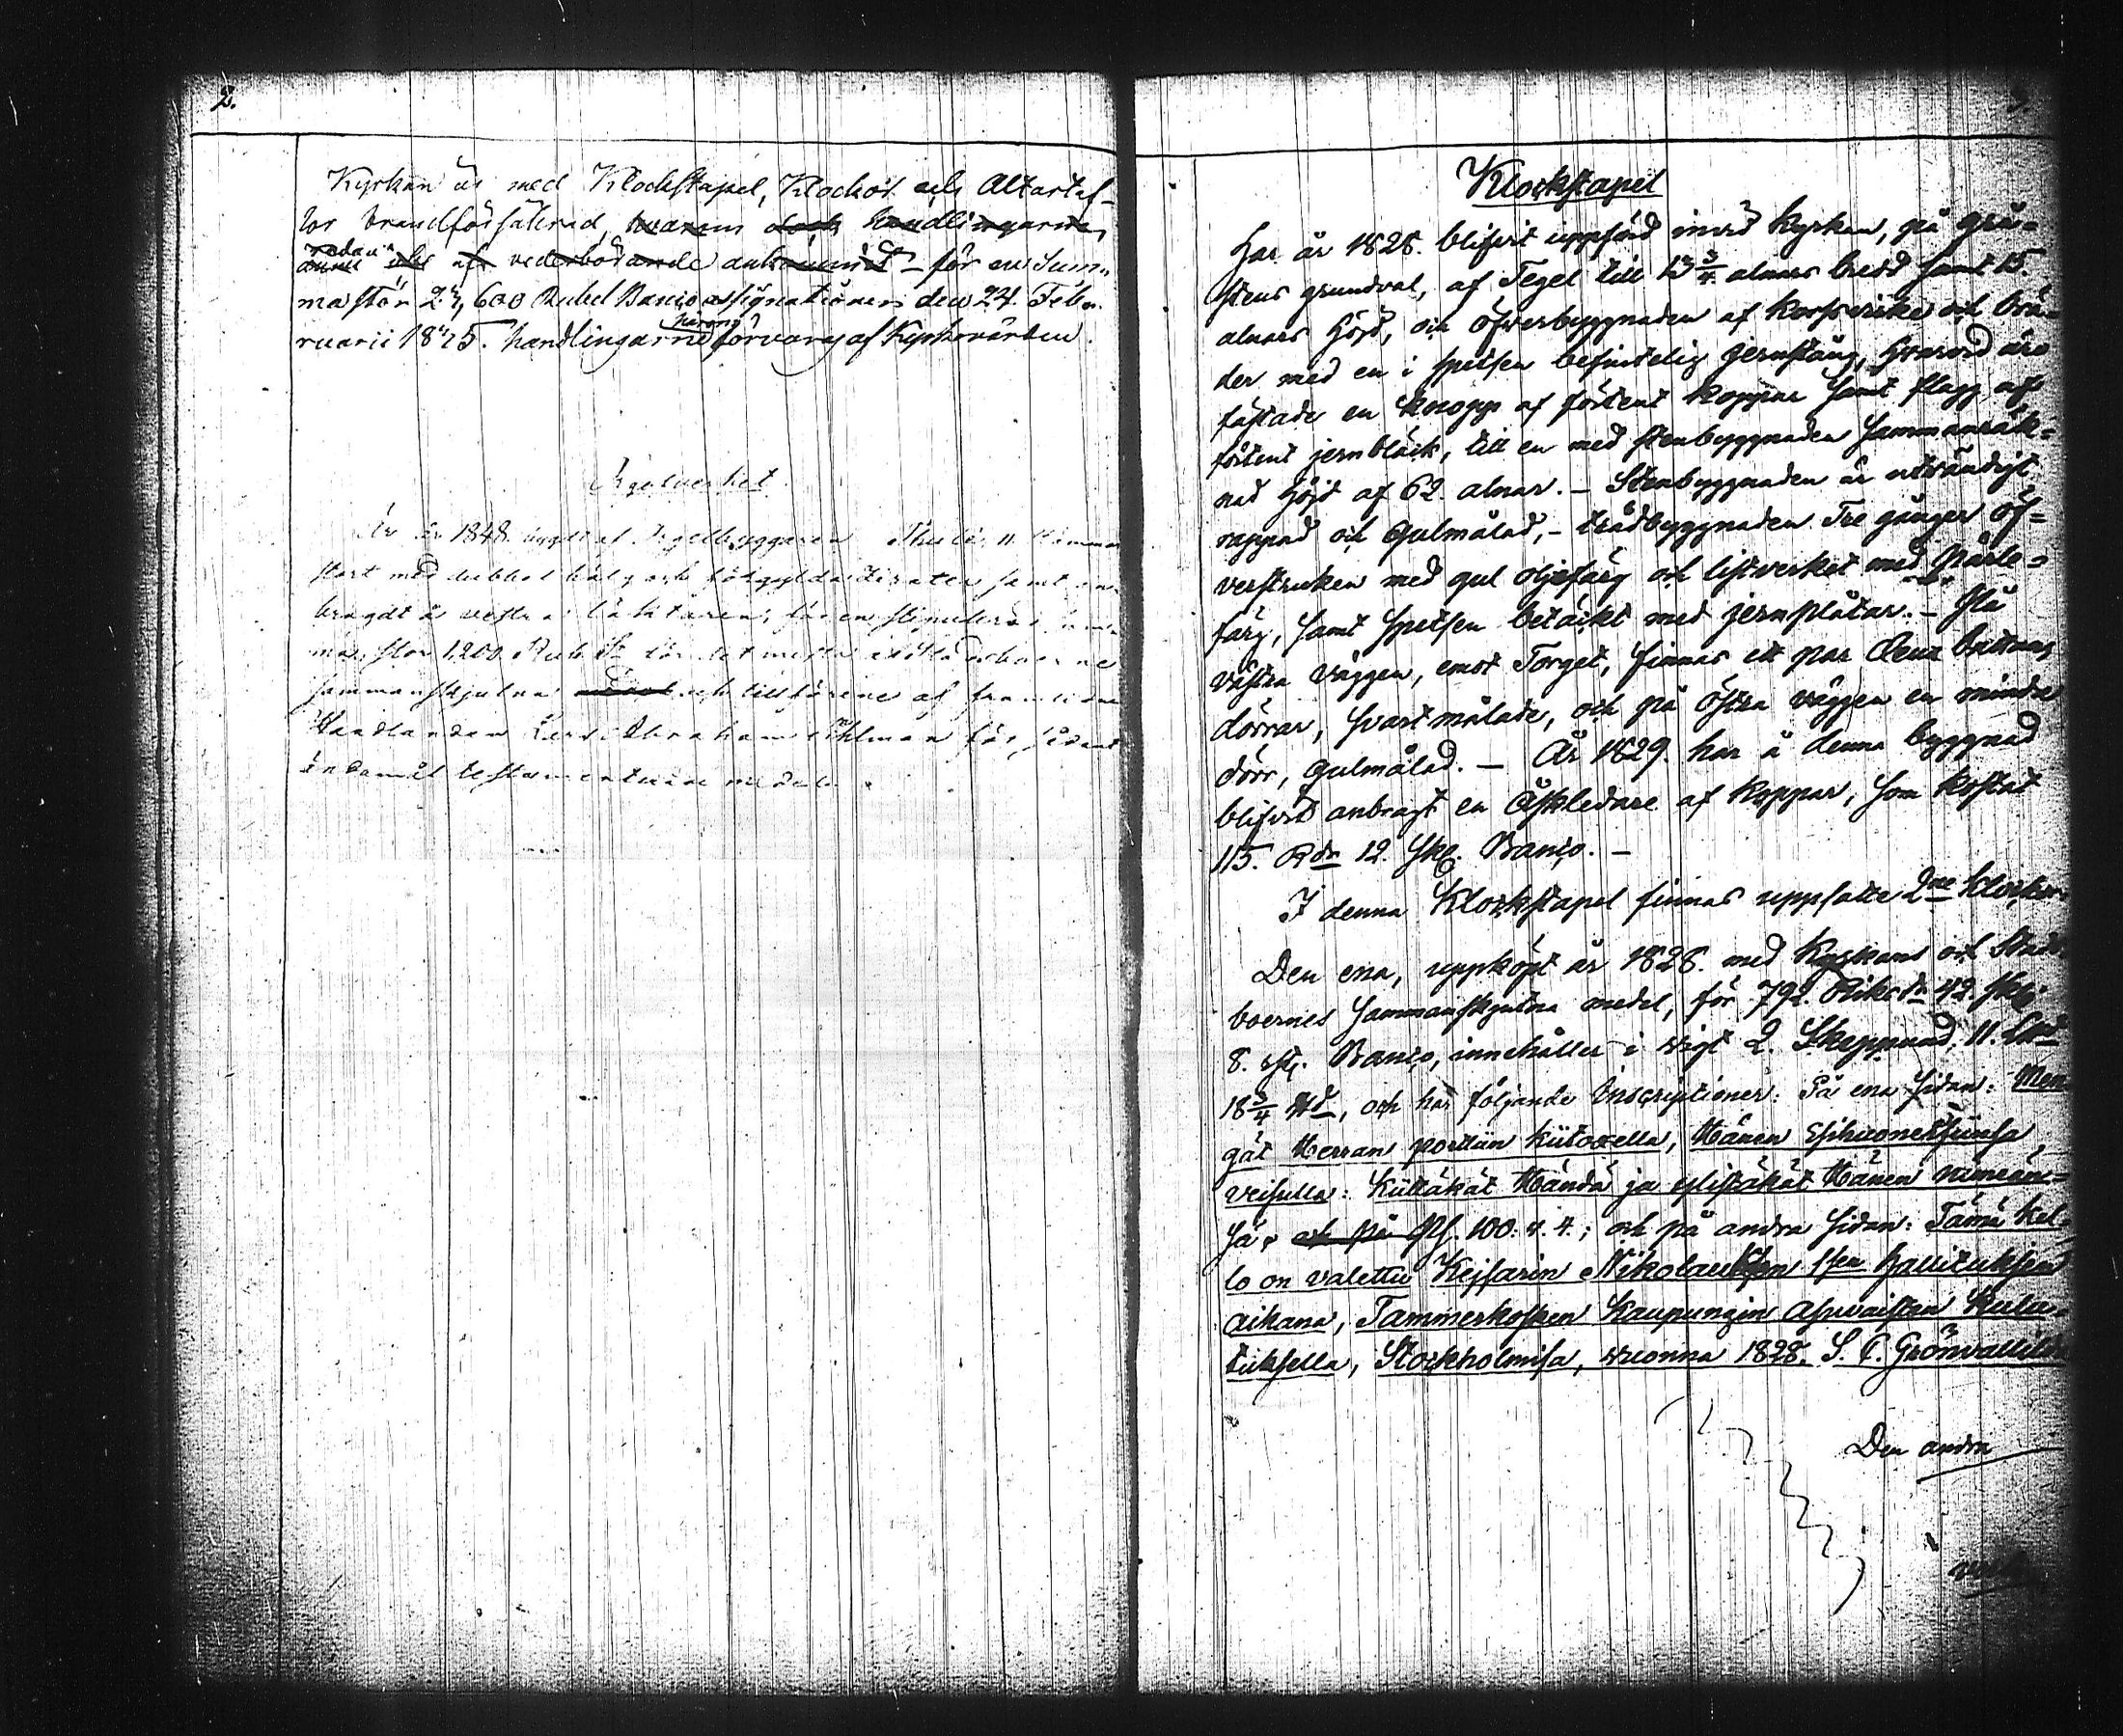 2.
Kyrkan är med Klockstapel, Klockor och Altartaf-
lor brandförsäkrad, hvarom dock handlingarne
redan
af vederbörande ankommit – för en Sum-
ma stor 24,600 Rubel Banco assignationer den 24 Feb-
härom i
ruarii 1825. handlingarne förvaras af Kyrkovärden.
Orgelverket
År 1848 bygdt af Orgelbyggaren Thulé, 11
stort med dubbel bälg och förgyllda sirater samt an-
bragdt å vestra läktaren, för en stipulerad sum-
ma stor 1,200 Rub
sammanskjutna och tillhörene af framlidne
Handlanden Abraham Öhlman för sådant
ändamål testamenterade medel.
Klockstapel
Har år 1828. blifvit uppförd invid Kyrkan, på grå-
stens grundval, af Tegel till 13 3/4 alnars bredd samt 15.
alnars höjd, och öfverbyggnaden af korsvirke och brä-
der med en i spetsen befintelig jernstång, hvarvid äro
fästade en knopp af förtent koppar samt flagg af
förtent jernbläck, till en med stenbyggnaden sammanräk-
nad höjd af 62. alnar. – Stenbyggnaden är utvändigt
rappad och gulmålad, – trädbyggnaden Tre gånger öf-
verstruken med gul oljefärg och listverket med Pärle-
färg, samt spetsen betäckt med jernplåtar. – På
västra väggen, emot Torget, finnas ett par
dörrar, svartmålade, och på östra väggen en mindre
dörr, gulmålad. – År 1829. har å denna byggnad
blifvit anbragt en Åskledare af koppar, som kostat
115. Rdr 12. sk. Banco. –
I denna Klockstapel finnas uppsatte 2ne klockor
Den ena, uppköpt år 1828. med Kyrkans och Stads-
boernes sammanskjutna medel, för 792. Riksdr 42. sk.
8. rst. Banco, innehåller i vigt 2. Skeppund, 11. Lt
18 3/4 td, och har följande Inscriptioner: På ena sidan: Men-
gät Herran portiin kiitoxella, Hänen esihuonettsiinsa
veisulla: Kiittäkät Händä ja ylistäkät Hänen nimeän-
sä. och på Ps. 100: v. 4.; och på andra sidan: Tämä kel-
lo on valettu Keisarin Nikolauksen 1sen Hallituksen
aikana, Tammerkosken Kaupungin asuvaisten kulu-
tuksella, Stockholmisa, vuonna 1828. S. C. Grönvallilda
Den andra